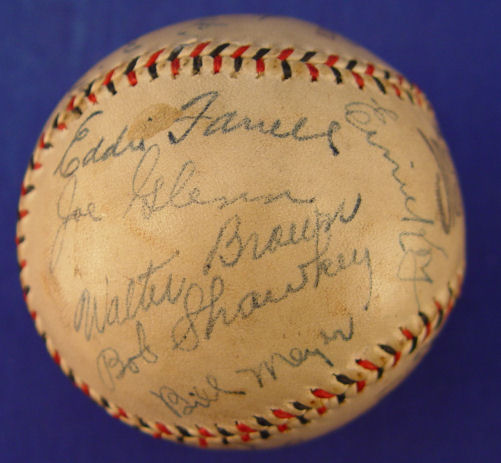 Eddie Farrell
Joe Glenn
Walter Brown
Bob Shawkey
Bill Meyer